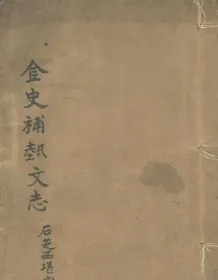 金史補藝文志
石芝西堪